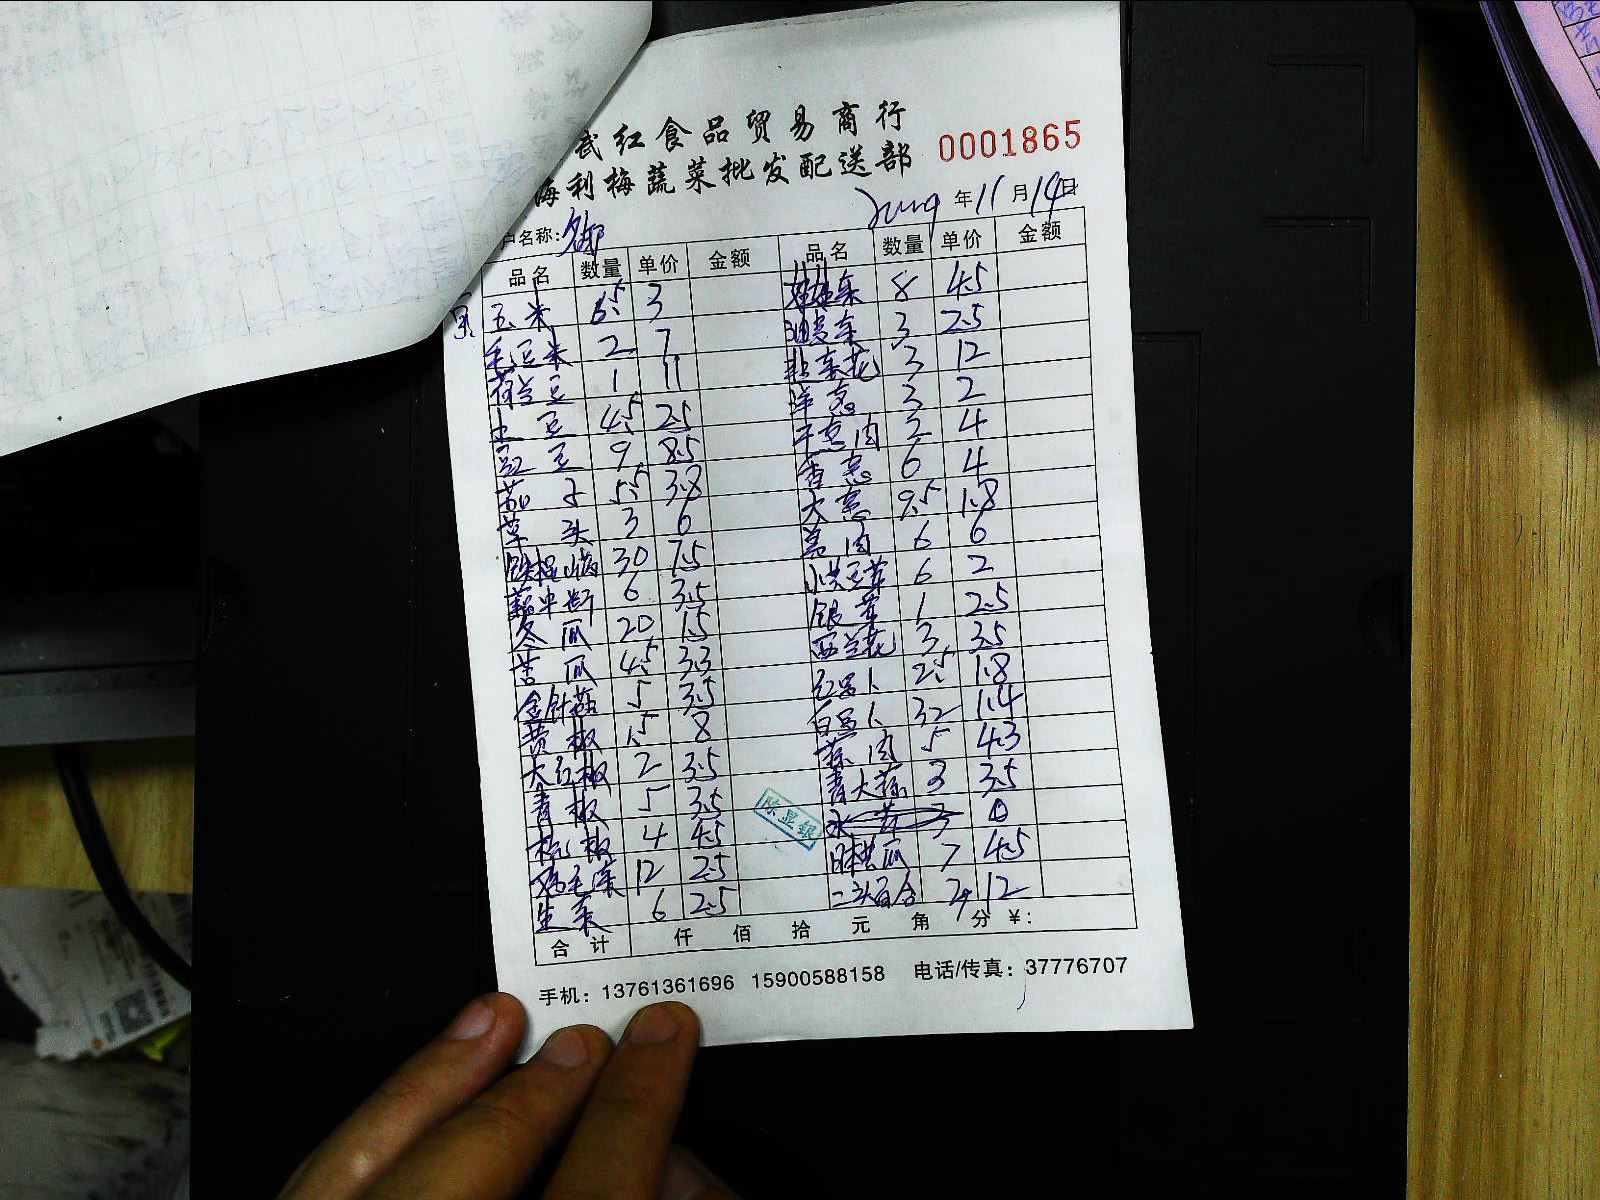 武红食品贸易商行
海利梅蔬菜批发配送部
0001865
年 11 月 14 日
户名称:
品名 数量 单价 金额 品名 数量 单价 金额
玉米 6.5 3 娃娃菜 8 4.5
毛豆米 2 7 油麦菜 3 2.5
荷兰豆 1 11 韭菜花 3 12
土豆 4.5 2.5 洋葱 3 2
豇豆 9 8.5 干葱肉 2 4
茄子 5.5 3.8 香葱 6 4
草头 3 6 大葱 9.5 1.8
铁棍山药 30 7.5 姜肉 6 6
藕中断 6 3.5 小黄豆芽 6 2
冬瓜 20 1.5 银芽 1 2.5
苦瓜 4.5 3.3 西兰花 3 3.5
金针菇 5 3.5 2.5 1.8
黄椒 1.5 8 32 1.4
大红椒 2 3.5 蒜肉 5 4.3
青椒 5 3.5 青大蒜 3 3.5
杭椒 4 4.5
鸡毛菜 12 2.5 日本黄瓜 7 4.5
生菜 6 2.5 二头百合 12
陈显银
合计 仟 佰 拾 元 角 分 ¥:
手机: 13761361696 15900588158 电话/传真: 37776707